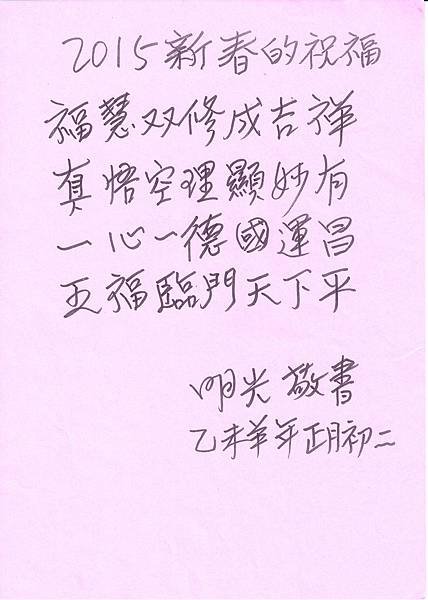 2015新春的祝福
福慧双修成吉祥
真悟空理顯妙有
一心一德國運昌
五福臨門天下平
明光 敬書
乙未羊年正月初二